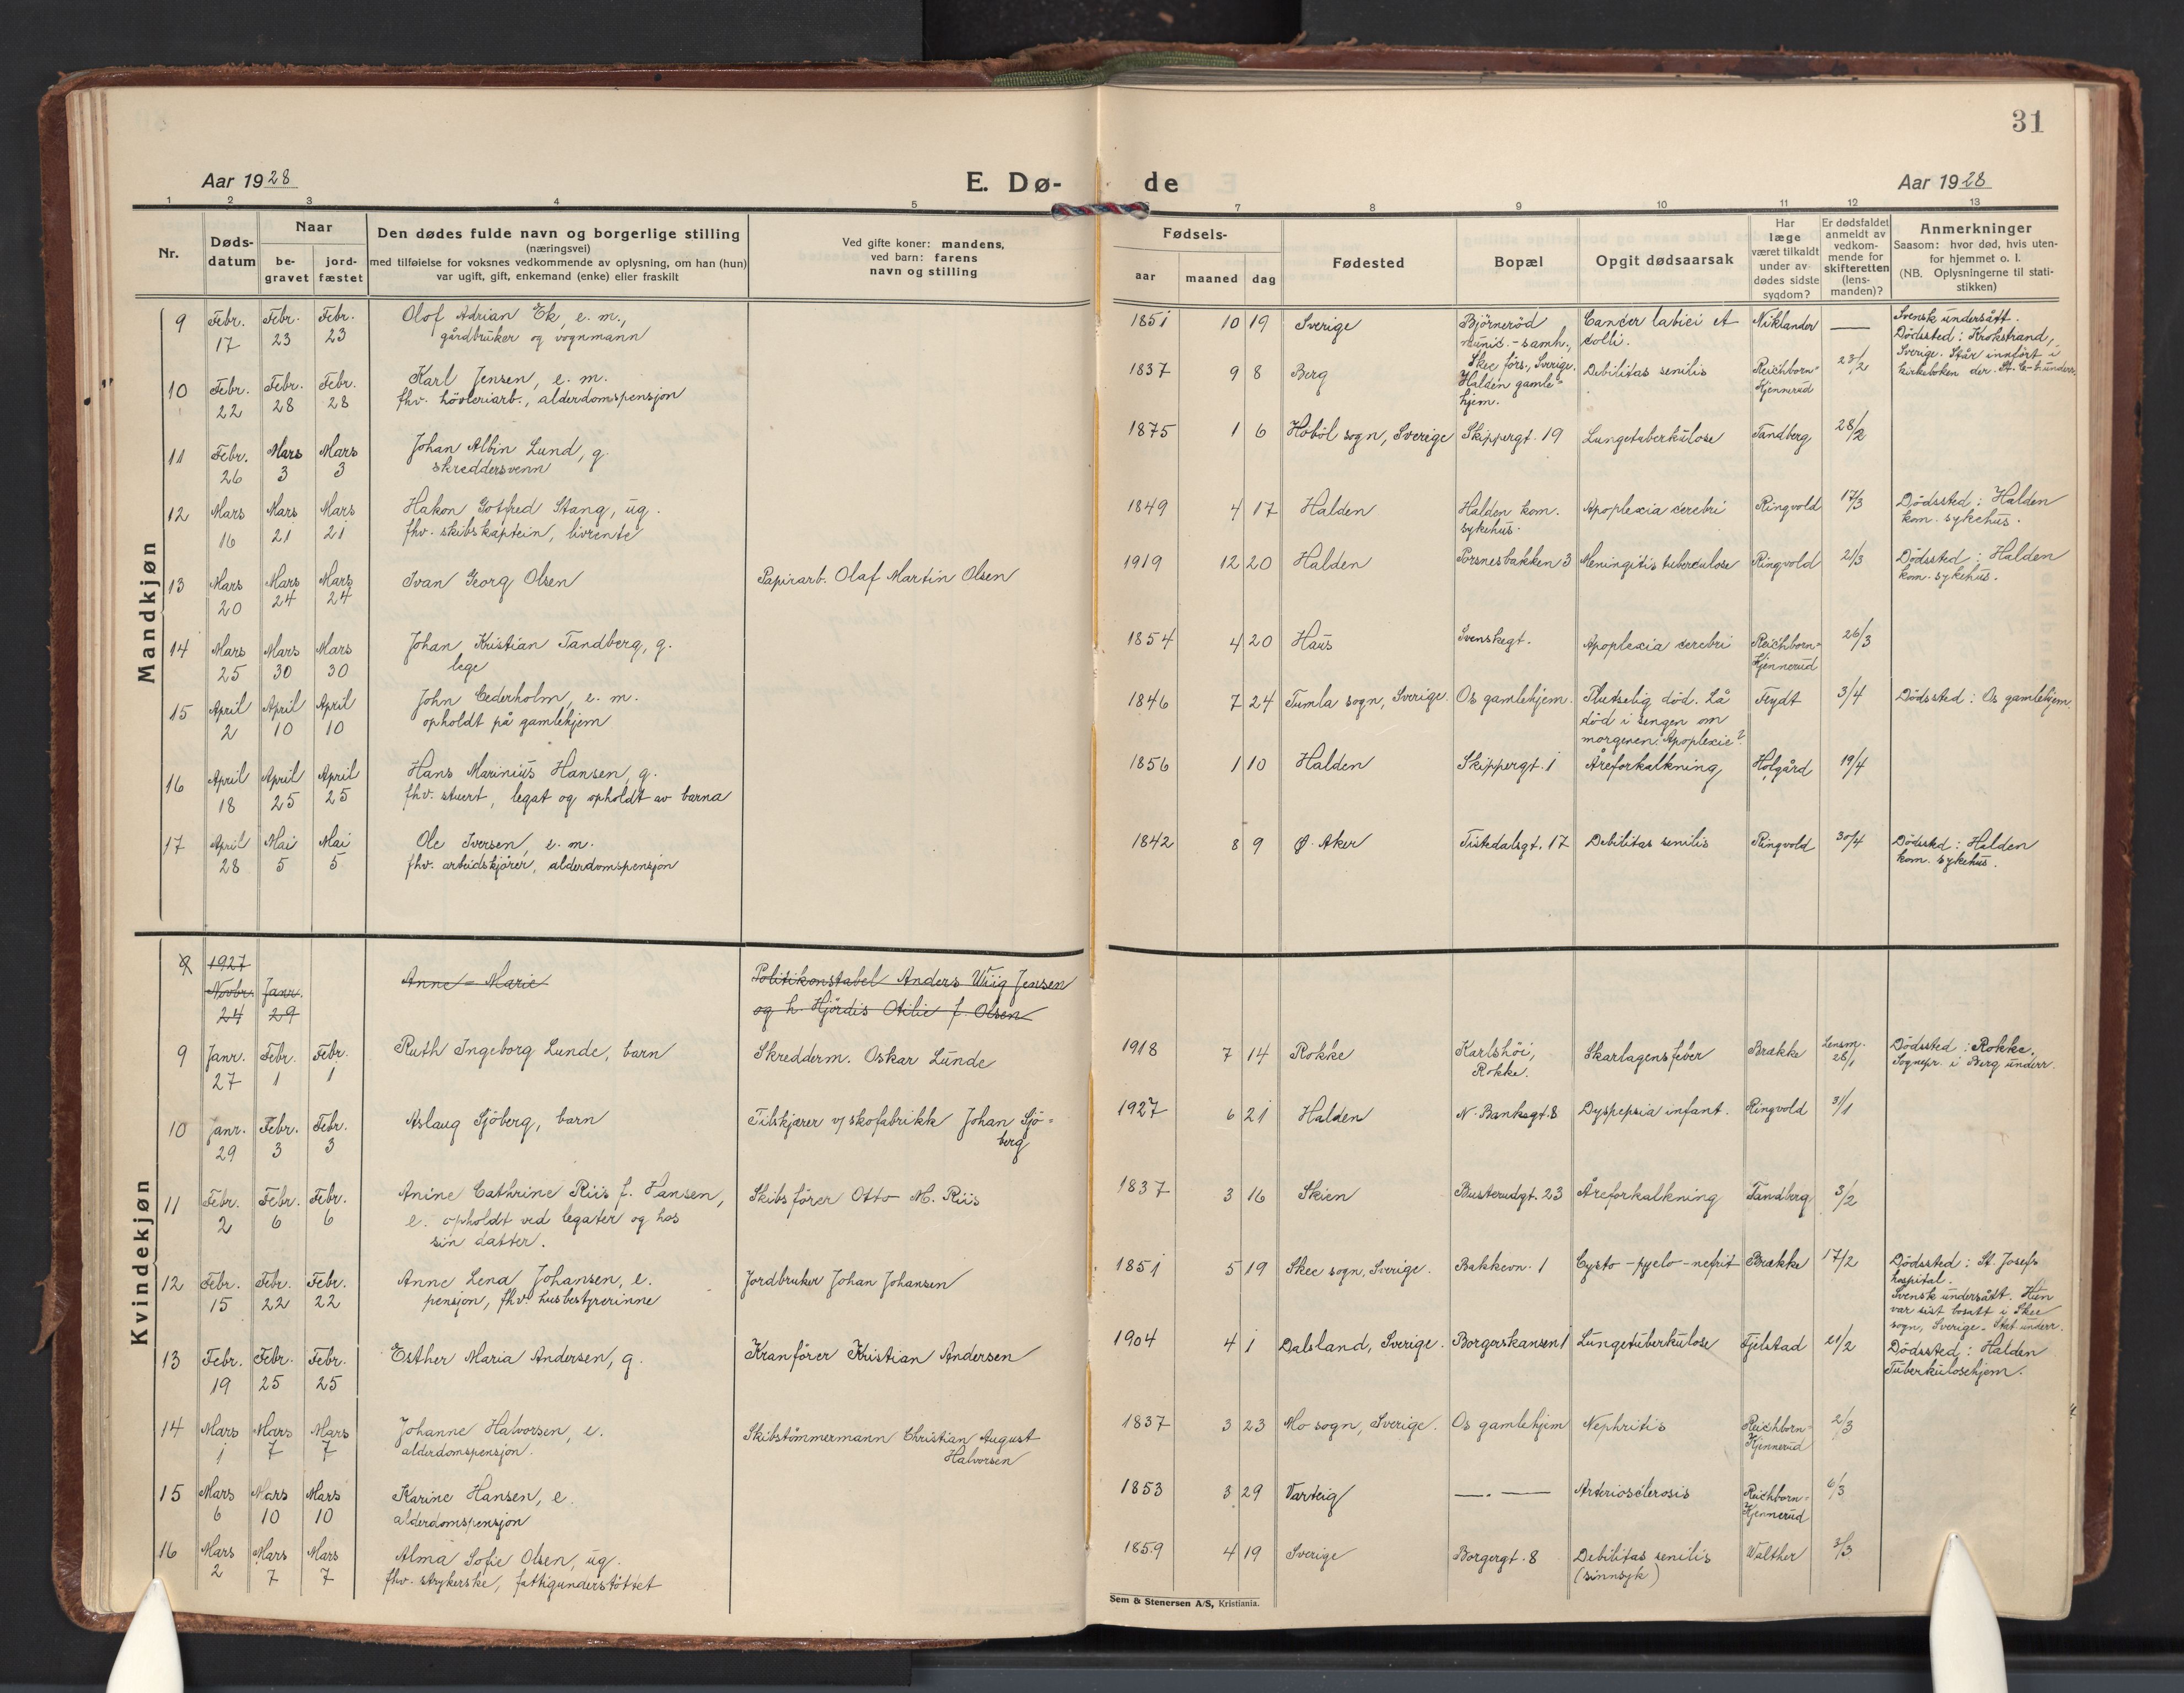 31
Aar 1928
E. Dø-
de
Aar 1928
1 2 3 4 5 7 8 9 10 11 12 13
Nr.
Døds-
datum
Naar
be-
gravet
jord-
fæstet
Den dødes fulde navn og borgerlige stilling
(næringsvei)
med tilføielse for voksnes vedkommende av oplysning, om han (hun)
var ugift, gift, enkemand (enke) eller fraskilt
Ved gifte koner: mandens,
ved barn: farens
navn og stilling
Fødsels-
aar maaned dag
Fødested
Bopæl
Opgit dødsaarsak
Har
læge
været tilkaldt
under av-
dødes sidste
sygdom?
Er dødsfaldet
anmeldt av
vedkom-
mende for
skifteretten
(lens-
manden)?
Anmerkninger
Saasom: hvor død, hvis uten-
for hjemmet o. l.
(NB. Oplysningerne til stati-
stikken)
Mandkjøn
9 Febr. 17 Febr. 23 Febr. 23
Olof Adrian Ek, e. m.,
gårdbruker og vognmann
1851 10 19 Sverige
Björneröd
munic.-samh.,
Skee förs., Sverige.
Cancer labici et
colli.
Niklander —
Svensk undersått.
Dödssted: Krokstrand,
Sverige. Står innfört i
kirkeboken der.
10 Febr. 22 Febr. 28 Febr. 28
Karl Jensen, e. m.
fhv. hövleriarb., alderdomspensjon
1837 9 8 Berg
Halden gamle-
hjem.
Debilitas senilis
Reichborn-
Kjennerud
23/2
11 Febr. 26 Mars 3 Mars 3
Johan Albin Lund, g.
skreddersvenn
1875 1 6 Höböl sogn, Sverige Skippergt. 19 Lungetuberkulose Tandberg 28/2
12 Mars 16 Mars 21 Mars 21
Hakon Gotfred Stang, ug.
fhv. skibskaptein, livrente
1849 4 17 Halden
Halden kom.
sykehus.
Apoplexia cerebri Ringvold 17/3
Dödssted: Halden
kom. sykehus.
13 Mars 20 Mars 24 Mars 24
Ivan Georg Olsen
Papirarb. Olaf Martin Olsen
1919 12 20 Halden Porsnesbakken 3 Meningitis tuberculose Ringvold 21/3
Dödssted: Halden
kom. sykehus.
14 Mars 25 Mars 30 Mars 30
Johan Kristian Tandberg, g.
lege
1854 4 20 Haus Svenskegt. Apoplexia cerebri
Reichborn-
Kjennerud
26/3
15 April 2 April 10 April 10
John Cederholm, e. m.
opholdt på gamlehjem
1846 7 24 Tumla sogn, Sverige. Os gamlehjem.
Plutselig död. Lå
död i sengen om
morgenen. Apoplexie?
Feydt 3/4 Dödssted: Os gamlehjem.
16 April 18 April 25 April 25
Hans Marinius Hansen, g.
fhv. stuert, legat og opholdt av barna
1856 1 10 Halden Skippergt. 1 Åreforkalkning Holgård 19/4
17 April 28 Mai 5 Mai 5
Ole Iversen, e. m.
fhv. arbeidskjører, alderdomspensjon
1842 8 9 Ø. Aker Tistedalsgt. 17 Debilitas senilis Ringvold 30/4
Dödssted: Halden
kom. sykehus.
Kvindekjøn
9 1927 Novbr. 24 Janr. 29
Anne-Marie
Politikonstabel Anders Wiig Jensen
og h. Hjördis Otilie f. Olsen
9 Janr. 27 Febr. 1 Febr. 1
Ruth Ingeborg Lunde, barn
Skredderm. Oskar Lunde
1918 7 14 Rokke
Karlshöi,
Rokke.
Skarlagensfeber Brække
Lensm.
28/1
Dödssted: Rokke.
Sognepr. i Berg underr.
10 Janr. 29 Febr. 3 Febr. 3
Aslaug Sjöberg, barn
Tilskjærer v/ skofabrikk Johan Sjö-
berg
1927 6 21 Halden N. Banksgt. 8 Dyspepsia infant. Ringvold 31/1
11 Febr. 2 Febr. 6 Febr. 6
Anine Cathrine Riis f. Hansen,
e. opholdt ved legater og hos
sin datter.
Skibsförer Otto M. Riis
1837 3 16 Skien Busterudgt. 23 Åreforkalkning Tandberg 3/2
12 Febr. 15 Febr. 22 Febr. 22
Anne Lena Johansen, e.
pensjon, fhv. husbestyrerinne
Jordbruker Johan Johansen
1851 5 19 Skee sogn, Sverige. Bakkevn. 1 Cysto-pyelo-nefrit Brække 17/2
Dödssted: St. Josefs
hospital.
Svensk undersått. Hun
var sist bosatt i Skee
sogn, Sverige. Stat underr.
13 Febr. 19 Febr. 25 Febr. 25
Esther Maria Andersen, g.
Kranförer Kristian Andersen
1904 4 1 Dalsland, Sverige. Borgerskansen 1 Lungetuberkulose Fjelstad 21/2
Dödssted: Halden
Tuberkulosehjem.
14 Mars 1 Mars 7 Mars 7
Johanne Halvorsen, e.
alderdomspensjon.
Skibstömmermann Christian August
Halvorsen
1837 3 23 Mo sogn, Sverige. Os gamlehjem Nephritis
Reichborn-
Kjennerud
2/3
15 Mars 6 Mars 10 Mars 10
Karine Hansen, e.
alderdomspensjon
1853 3 29 Varteig —.— Arteriosclerosis
Reichborn-
Kjennerud
6/3
16 Mars 2 Mars 7 Mars 7
Alma Sofie Olsen, ug.
fhv. strykerske, fattigunderstöttet
1859 4 19 Sverige Borgergt. 8
Debilitas senilis
(sinnsyk)
Walther 3/3
Sem & Stenersen A/S, Kristiania.